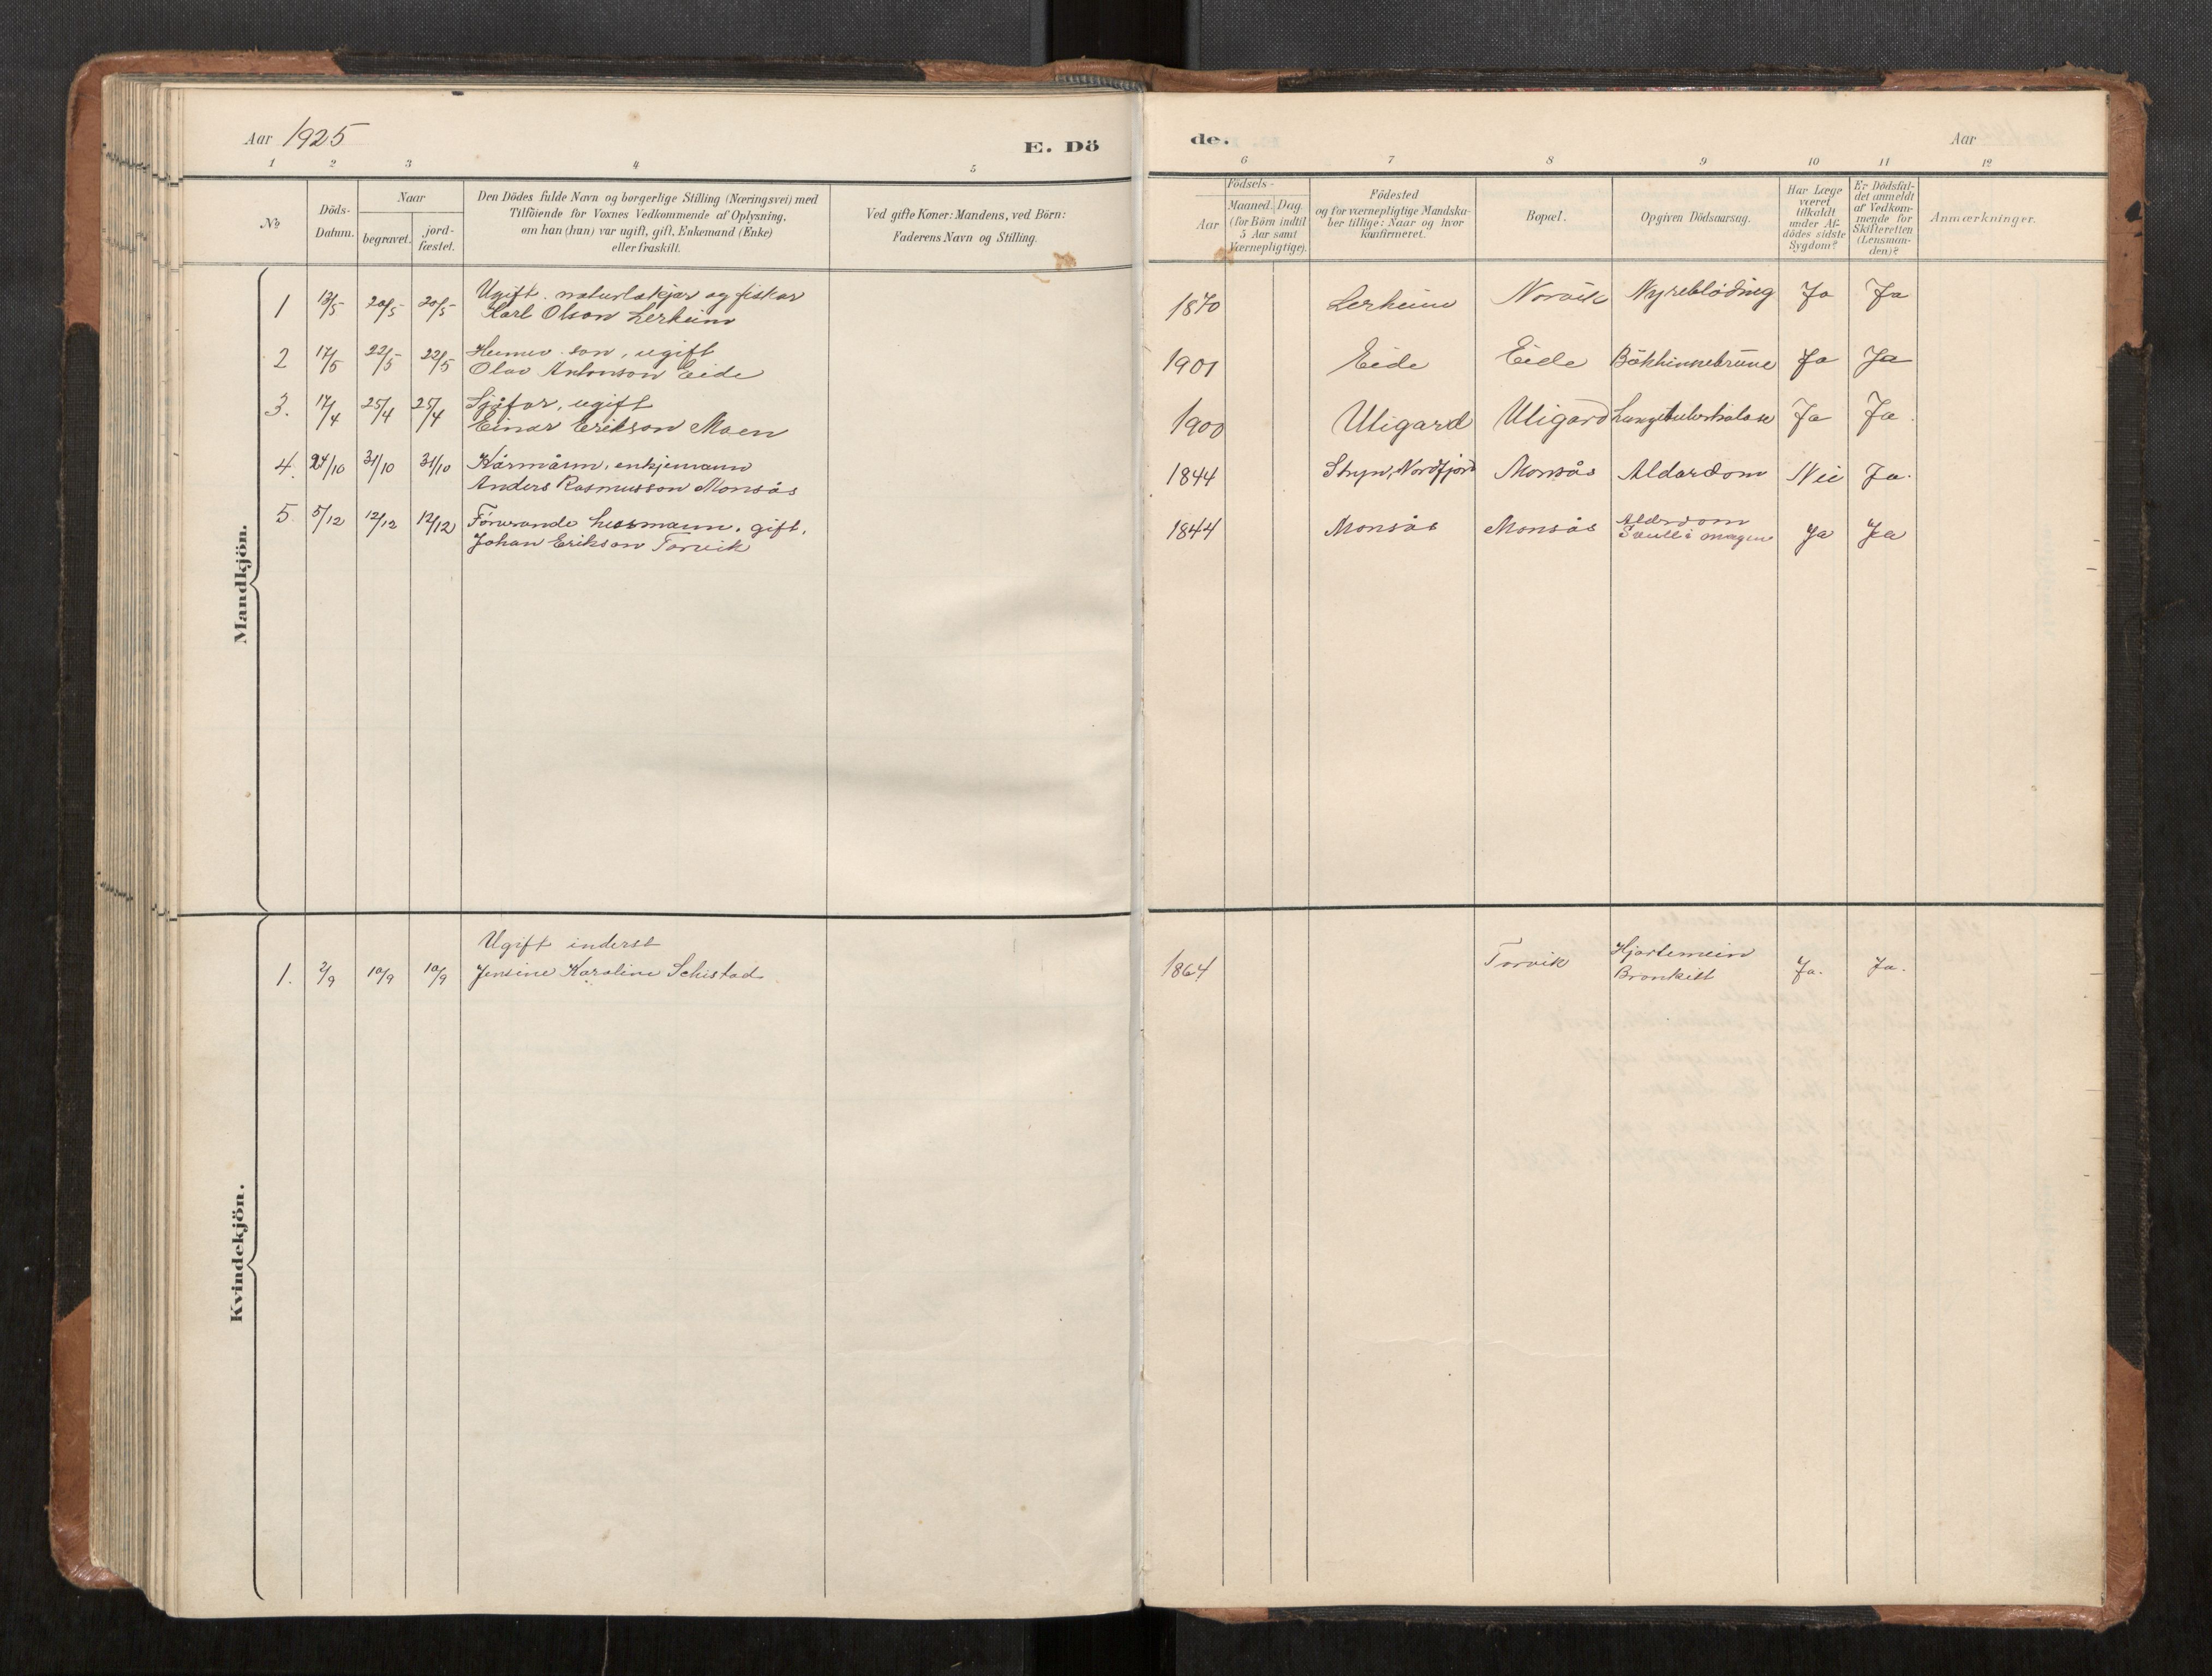 Aar 1925
E. Dö
de.
Aar
1 2 3 4 5 6 7 8 9 10 11 12
No
Döds-
Datum.
Naar
begravet.
jord-
fæstet.
Den Dödes fulde Navn og borgerlige Stilling (Næringsvei) med
Tilföiende for Voxnes Vedkommende af Oplysning,
om han (hun) var ugift, gift, Enkemand (Enke)
eller fraskilt.
Ved gifte Koner: Mandens, ved Börn:
Faderens Navn og Stilling.
Födsels-
Aar
Maaned. Dag.
(for Börn indtil
5 Aar samt
Værnepligtige).
Födested
og for værnepligtige Mandska-
ber tillige: Naar og hvor
konfirmeret.
Bopæl.
Opgiven Dödsaarsag.
Har Læge
været
tilkaldt
under Af-
dödes sidste
Sygdom?
Er Dödsfal-
det anmeldt
af Vedkom-
mende for
Skifteretten
(Lensman-
den)?
Anmærkninger.
Mandkjön.
Ugift. naturlækjar og fiskar
1 13/5 20/5 20/5 Karl Olson Lerheim 1870 Lerheim Norvik Nyreblöding Ja Ja
Heime son, ugift
2 17/5 22/5 22/5 Olav Antonson Eide 1901 Eide Eide Ja Ja
Sjöfar, ugift
3. 17/4 25/4 25/4 Einar Erikson Moen 1900 Utigard Utigard Lungetuberkulose Ja Ja.
4. 24/10 31/10 31/10 Kårmann, enkjemann 1844 Stryn, Nordfjord Monsås Alderdom Nei Ja.
Anders Rasmusson Monsås
5 5/12 12/12 12/12 Förerande husmann, gift. 1844 Monsås Monsås Alderdom Ja Ja
Johan Erikson Torvik i magen
Kvindekjön.
Ugift inderst
1. 2/9 10/9 10/9 Jensine Karoline Schistad 1864 Torvik Hjartemein Ja. Ja.
Bronkitt